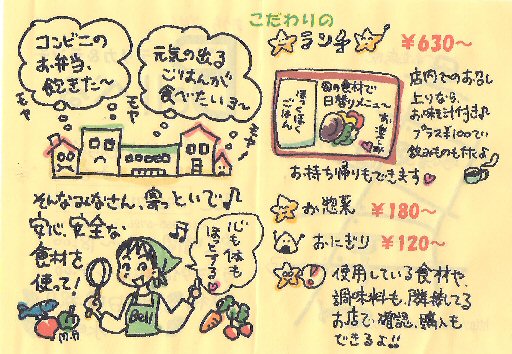 コンビニの
お弁当、
飽きた〜
元気の出る
ごはんが
食べたいヨ〜
モヤ
モヤ
モヤ
そんなみなさん、寄っといで♪
安心、安全な
食材を
使って!
心も体も
ほっとする
こだわりの
ランチ
¥630〜
旬の食材で
日替りメニュー
お漬物
ほくほく
ごはん
店内でのお召し
上りなら、
お味噌汁付き♪
プラス¥100で
飲みものもただよ
お持ち帰りもできます
お惣菜 ¥180〜
おにぎり ¥120〜
使用している食材や、
調味料も、隣接してる
お店で確認、購入も
できるよ!!